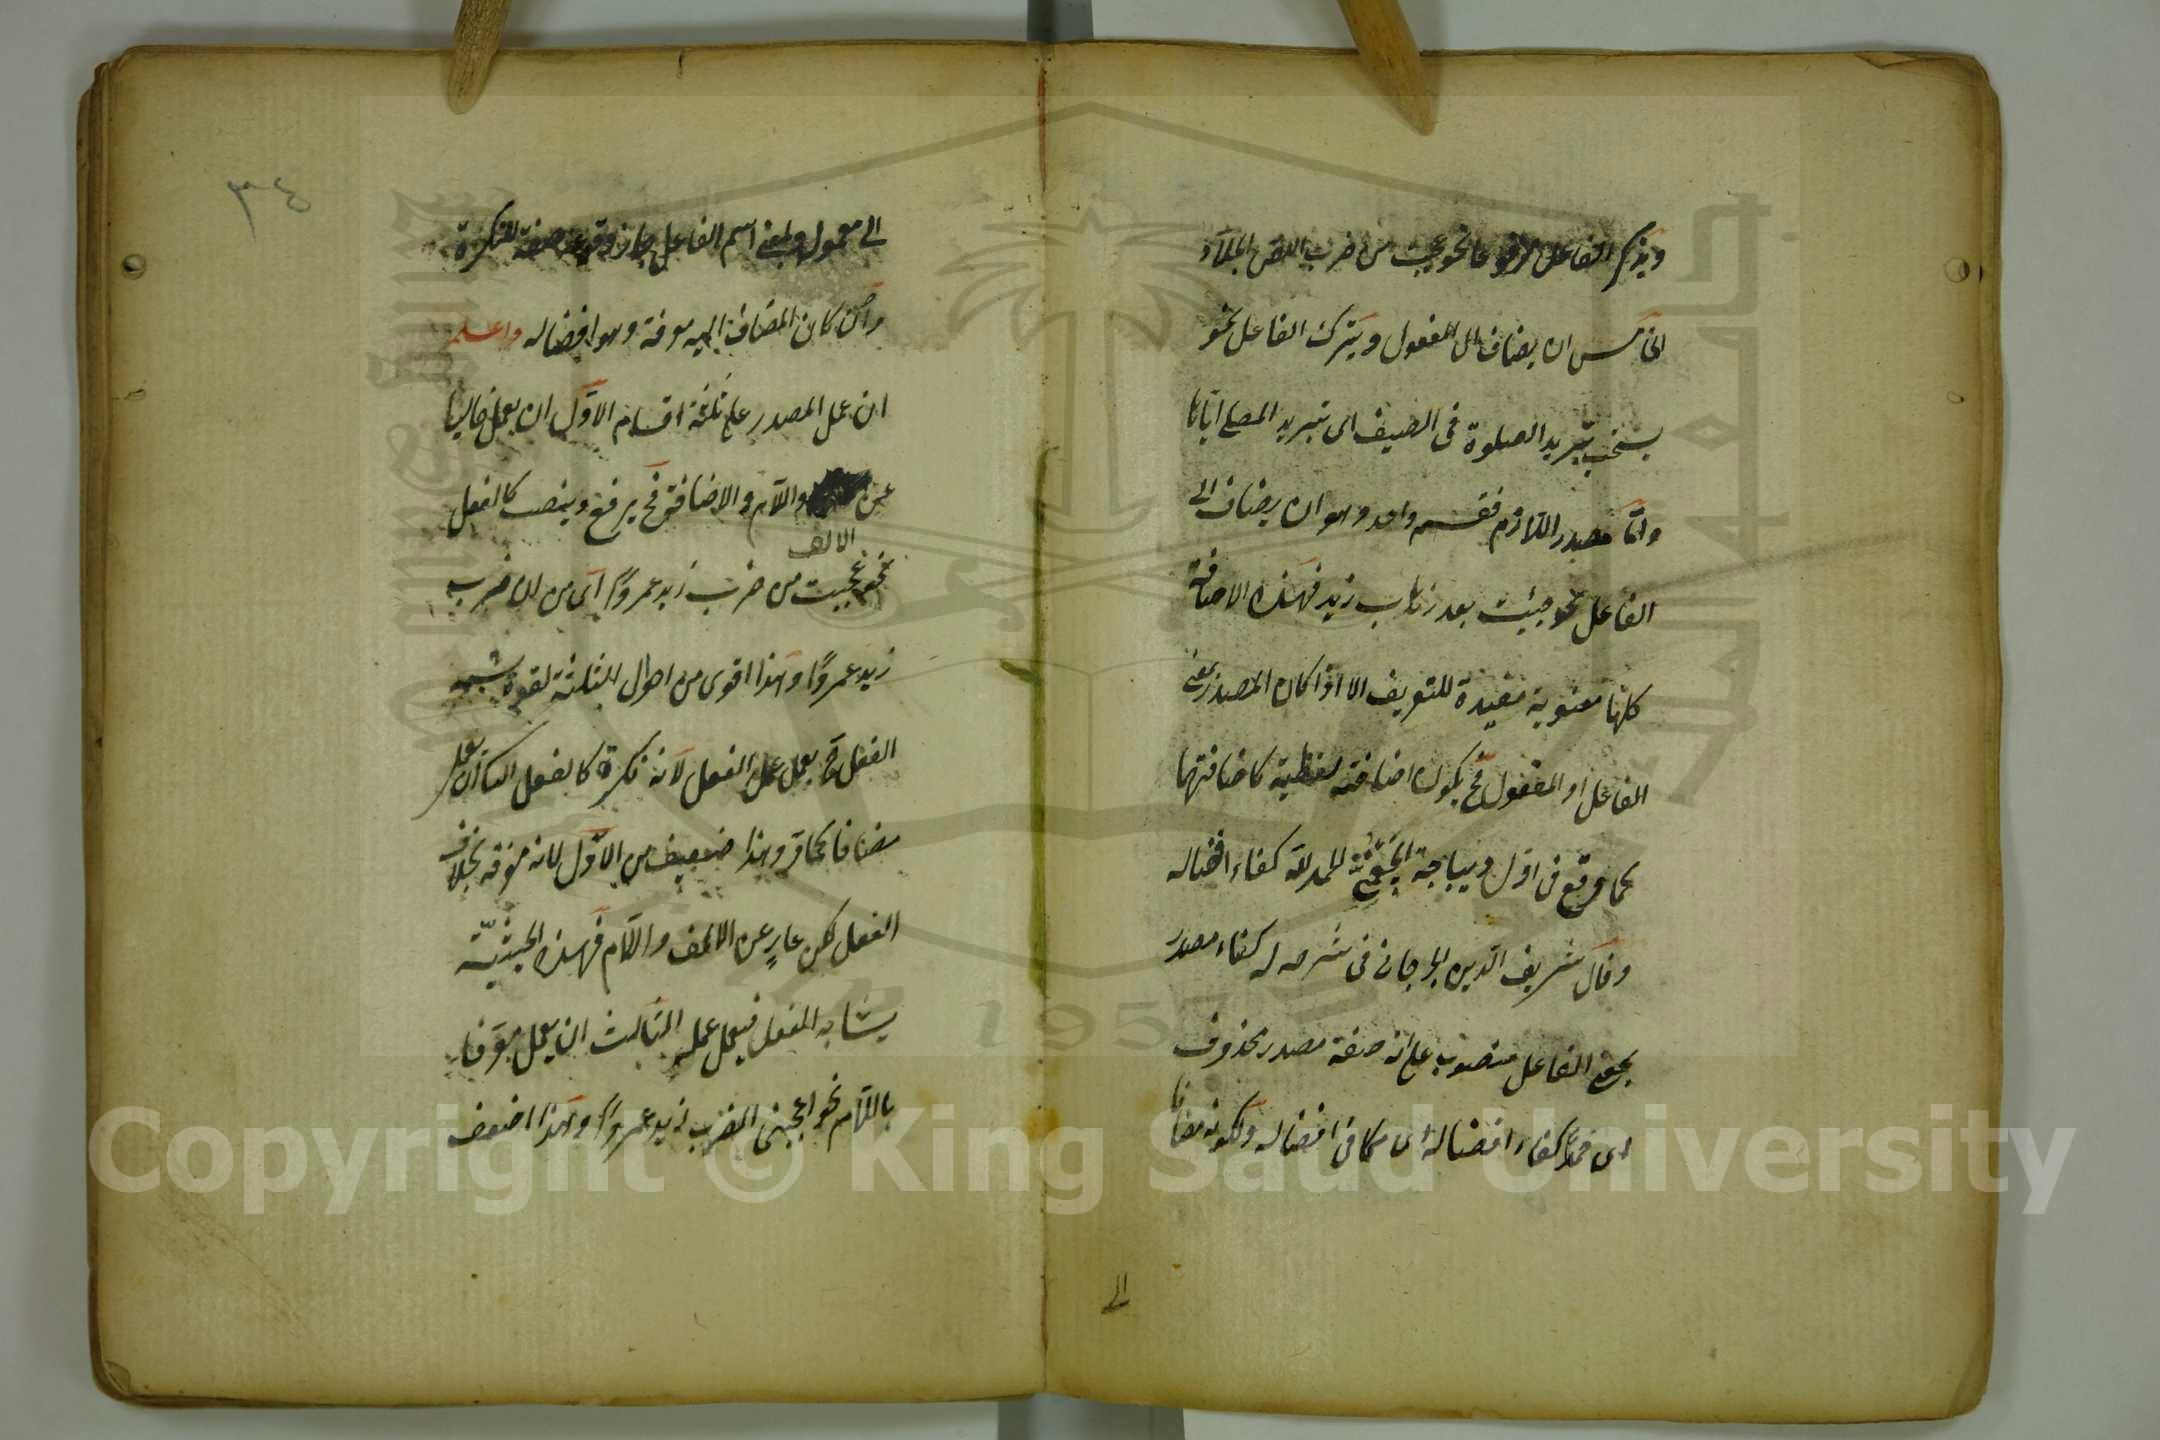 ويذكر الفاعل مرفوعا نحو عجبت من ضرب اللص الجلاد
الخامس ان يضاف الى المفعول ويترك الفاعل نحو
يستحب تبريد الصلوة فى الصيف اى تبريد المصلى اياها
واما مصدر اللازم فقسم واحد وهو ان يضاف الى
الفاعل نحو جئت بعد ذهاب زيد فهذه الاضافة
كلها معنوية مفيدة للتعريف الا اذا كان المصدر بمعنى
الفاعل او المفعول فح يكون اضافته لفظية كاضافتهما
كما وقع فى اول ديباجة الحمد لله كفاء افضاله
وقال شريف الدين الجرجانى فى شرحه له كفاء مصدر
بمعنى الفاعل منصوب على انه صفة مصدر محذوف
اى حمدا كفاء افضاله اى مكافئ افضاله ولكونه مضافا
الى
٣٤
الى معموله وبمعنى اسم الفاعل جاز وقوعه صفة للنكرة
وان كان المضاف اليه معرفة وهو افضاله واعلم
ان عمل المصدر على ثلثة اقسام الاول ان يعمل خاليا
عن واللام والاضافة فح يرفع وينصب كالفعل
الالف
نحو عجبت من ضرب زيد عمروًا اى من ان ضرب
زيد عمروًا وهذا اقوى من احوال الثلثة لقوة شبه
الفعل فح يعمل عمل الفعل لانه نكرة كالفعل الثانى ان يعمل
مضافا كما مر وهذا ضعيف من الاول لانه معرفة بخلاف
الفعل لكن عارٍ عن الالف واللام فهذه الحيثية
يشابه الفعل فيعمل عمله الثالث ان يعمل معرفا
باللام نحو اعجبنى الضرب زيد عمروًا وهذا اضعف
1957
Copyright © King Saud University